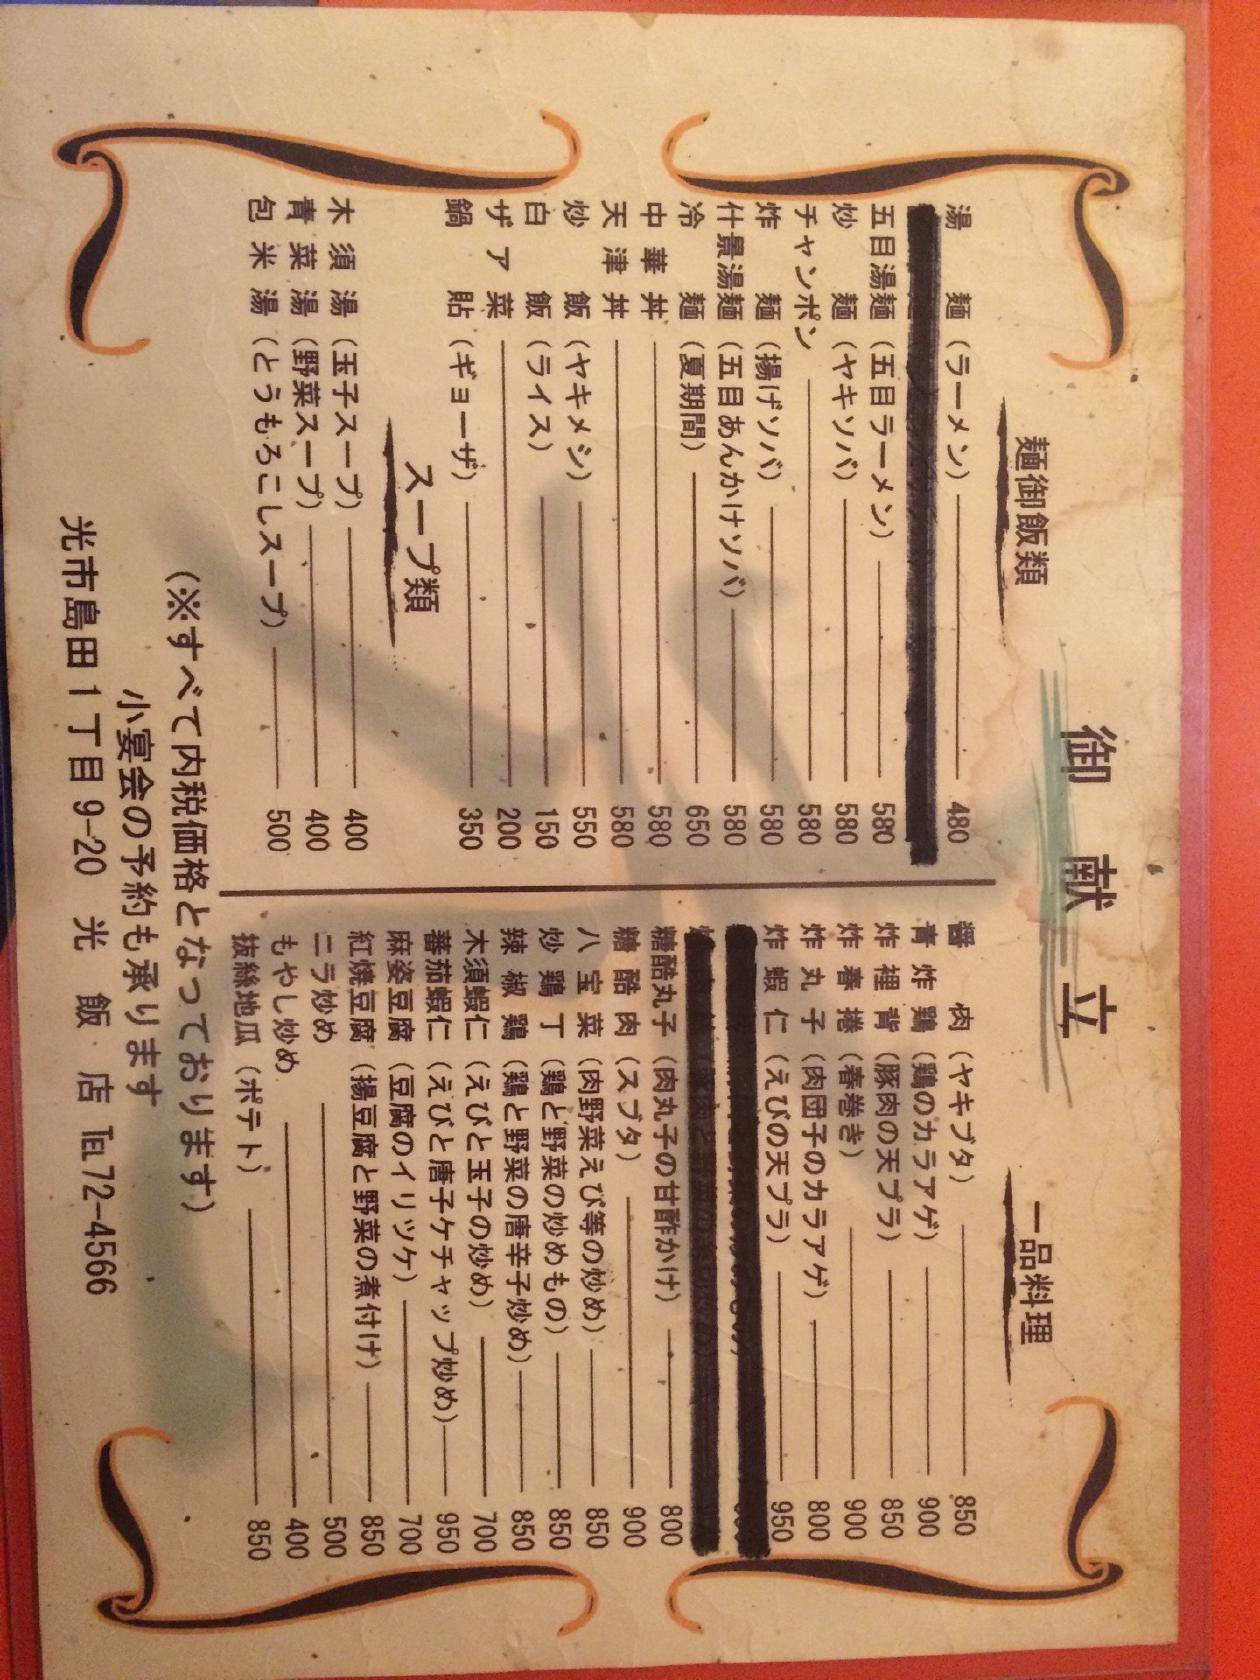 御献立
麺御飯類
湯麺（ラーメン） 480
五目湯麺（五目ラーメン） 580
炒麺（ヤキソバ） 580
チャンポン 580
炸麺（揚げソバ） 580
什景湯麺（五目あんかけソバ） 580
冷麺（夏期間） 650
中華丼 580
天津丼 580
炒飯（ヤキメシ） 550
白飯（ライス） 150
ザアー菜 200
鍋貼（ギョーザ） 350
スープ類
木須湯（玉子スープ） 400
青菜湯（野菜スープ） 400
包米湯（とうもろこしスープ） 500
一品料理
醤肉（ヤキブタ） 850
青炸鶏（鶏のカラアゲ） 900
炸裡背（豚肉の天プラ） 850
炸春捲（春巻き） 900
炸丸子（肉団子のカラアゲ） 800
炸蝦仁（えびの天プラ） 950
糖酷丸子（肉丸子の甘酢かけ） 800
糖酷肉（スブタ） 900
八宝菜（肉野菜えび等の炒め） 850
炒鶏丁（鶏と野菜の炒めもの） 850
辣椒鶏（鶏と野菜の唐辛子炒め） 850
木須蝦仁（えびと玉子の炒め） 700
蕃茄蝦仁（えびと唐子ケチャップ炒め） 950
麻姿豆腐（豆腐のイリツケ） 700
紅焼豆腐（揚豆腐と野菜の煮付け） 850
ニラ炒め 500
もやし炒め 400
抜絲地瓜（ポテト） 850
（※すべて内税価格となっております）
小宴会の予約も承ります
光市島田1丁目9-20 光飯店 TEL72-4566